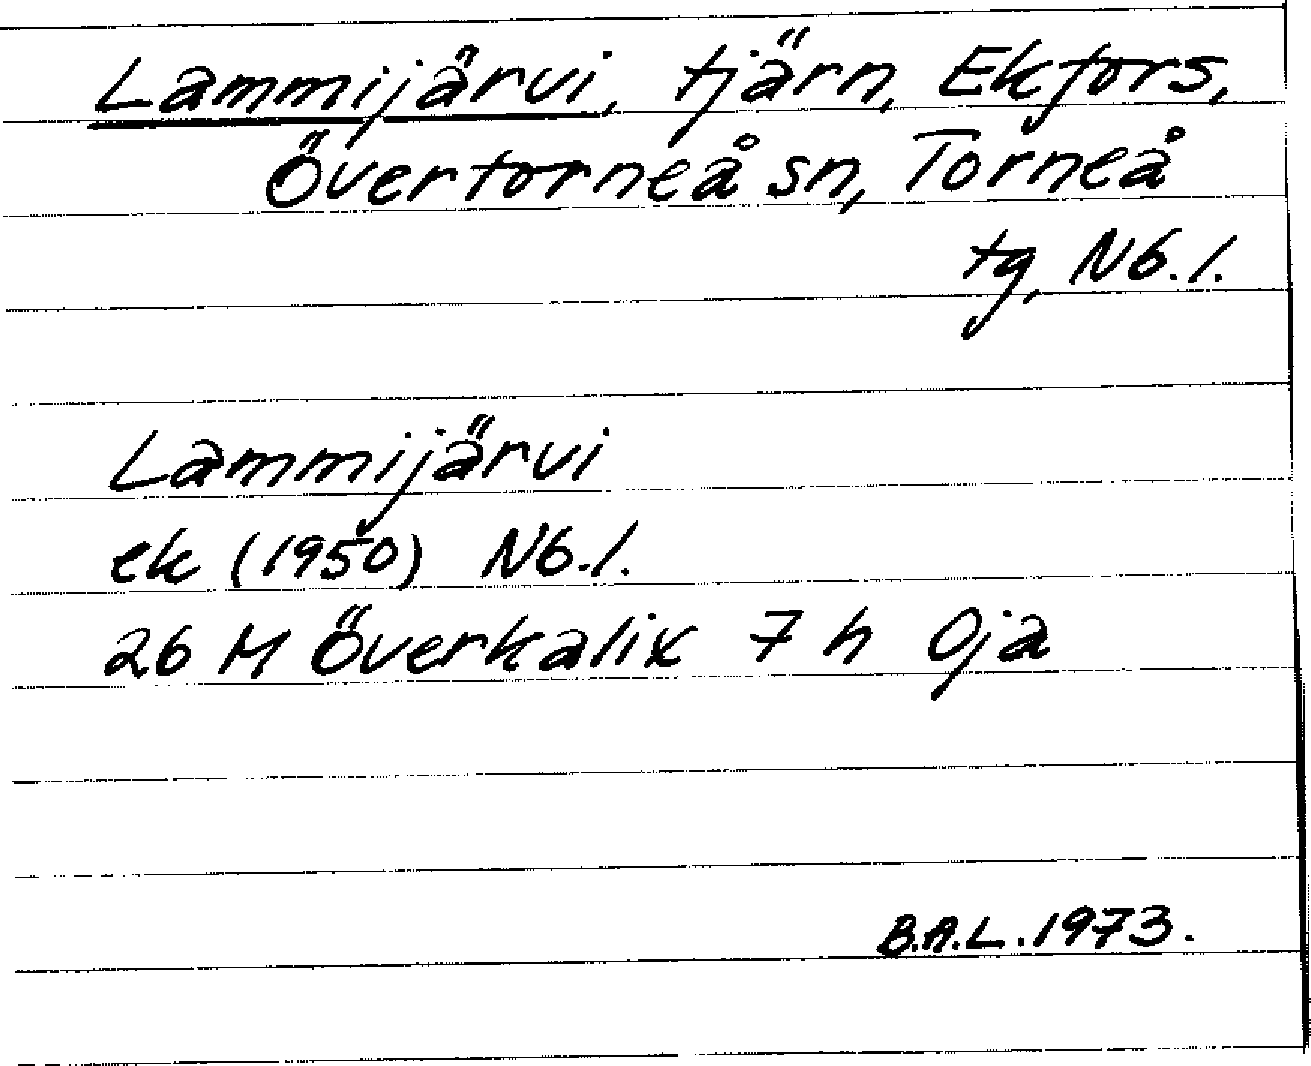 Lammijärvi, tjärn, Ekfors,
Övertorneå sn, Torneå
tg, Nb. l.
Lammijärvi
ek (1950) Nb. l.
26 M Överkalix 7 h Oja
B.A.L. 1973.